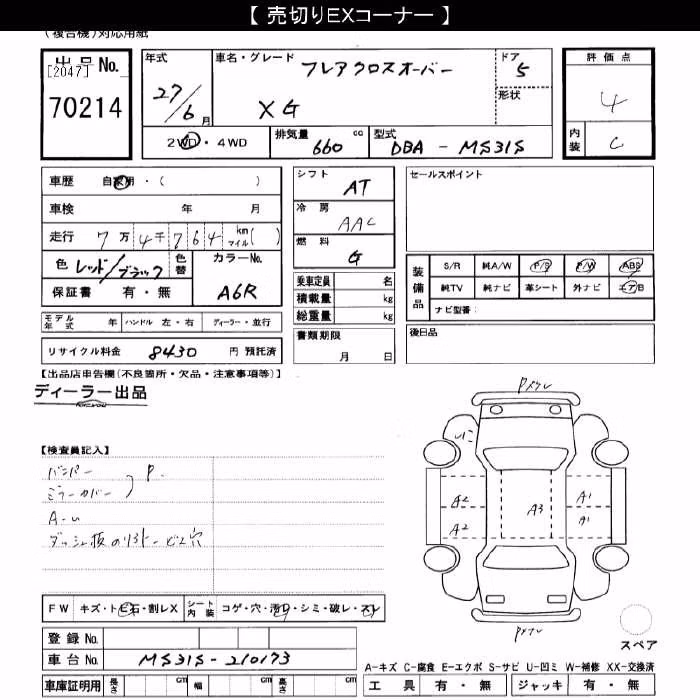 【 売切りEXコーナー 】
(複合機)対応用紙
出品 No.
[2047]
70214
年式
27/6月
車名・グレード
フレアクロスオーバー
XG
ドア
5
形状
評価点
4
内装
C
2WD・4WD
排気量 660 cc
型式 DBA - MS31S
車歴 自家用・( )
車検 年 月
走行 7万4千764 km マイル( )
色 レッド/ブラック
色替
カラーNo.
A6R
保証書 有・無
シフト
AT
冷房
AAC
燃料
G
乗車定員 名
積載量 kg
総重量 kg
書類期限
月 日
セールスポイント
装備品
S/R 純A/W P/S P/W ABS
純TV 純ナビ 革シート 外ナビ エアB
ナビ型番:
後日品
モデル年式 年 ハンドル 左・右 ディーラー・並行
リサイクル料金 8430 円 預託済
【出品店申告欄(不良箇所・欠品・注意事項等)】
ディーラー出品
【検査員記入】
バンパー
ミラーカバー
P-
A-u
ダッシュ板
穴
FW キズ・トビ石・割レX
シート内装 コゲ・穴・汚レ・シミ・破レ・スレ
登録 No.
車台 No. MS31S-210173
車庫証明用 長さ cm 幅 cm 高さ cm
Pメクレ
A2
A2
A3
A1
A1
Pメクレ
スペア
A-キズ C-腐食 E-エクボ S-サビ U-凹ミ W-補修 XX-交換済
工具 有・無 ジャッキ 有・無